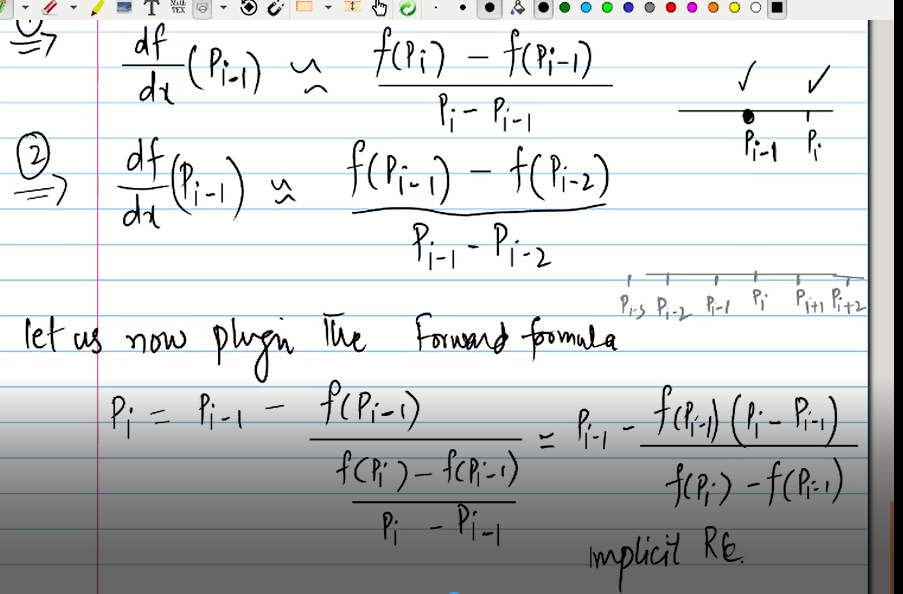 ① ⇒ df/dx (P_{i-1}) ≈ (f(P_i) - f(P_{i-1})) / (P_i - P_{i-1})
✓ ✓
P_{i-1} P_i
② ⇒ df/dx (P_{i-1}) ≈ (f(P_{i-1}) - f(P_{i-2})) / (P_{i-1} - P_{i-2})
P_{i-3} P_{i-2} P_{i-1} P_i P_{i+1} P_{i+2}
let us now plugin the Forward formula
P_i = P_{i-1} - f(P_{i-1}) / ((f(P_i) - f(P_{i-1})) / (P_i - P_{i-1})) = P_{i-1} - (f(P_{i-1}) (P_i - P_{i-1})) / (f(P_i) - f(P_{i-1}))
implicit RE.